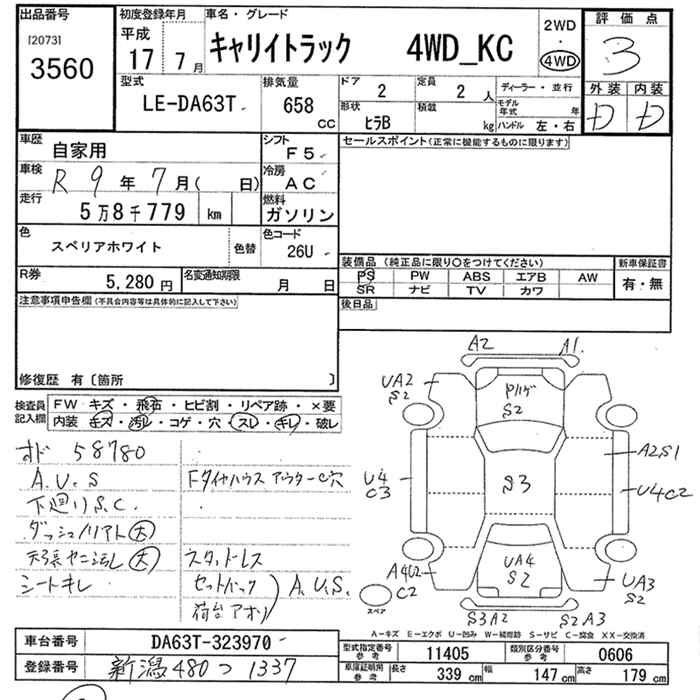 出品番号
[2073]
3560
初度登録年月
平成
17 7月
車名・グレード
キャリイトラック 4WD_KC
2WD
・
4WD
評価点
3
外装 内装
D D
型式
LE-DA63T
排気量
658
CC
ドア
2
定員
2 人
ディーラー・並行
形状
ヒラB
積載
kg
モデル年式 年
ハンドル 左・右
車歴
自家用
シフト
F5
セールスポイント(正常に機能するものに限ります)
車検
R 9 年 7 月( 日)
冷房
AC
走行
5万8千779 km
燃料
ガソリン
色
スペリアホワイト
色替
色コード
26U
装備品(純正品に限り○をつけてください)
新車保証書
PS PW ABS エアB AW
SR ナビ TV カワ
有・無
R券
5,280円
名変通知期限
月 日
後日品
注意事項申告欄(不具合内容等は具体的に記入して下さい)
修復歴 有〔箇所 〕
検査員記入欄
FW キズ・飛石・ヒビ割・リペア跡・×要
内装 キズ・汚レ・コゲ・穴・スレ・キレ・破レ
オド 58780
A.U.S
Fタイヤハウス アウターC穴
下廻りS.C.
ダッシュノリアト(大)
天張ヤニ汚レ(大)
スタッドレス
シートキレ
セットバック
荷台アオリ
A.U.S.
A2 A1.
UA2
S2
Pハゲ
S2
A2S1
U4
C3
S3
U4C2
A4U2
C2
UA4
S2
UA3
S2
スペア
S3A2 S2A3
A-キズ E-エクボ U-凹み W-補修跡 S-サビ C-腐食 XX-交換済
車台番号
DA63T-323970
型式指定番号
参考
11405
類別区分番号
参考
0606
登録番号
新潟480つ1337
車庫証明用
参考
長さ
339 cm
幅
147 cm
高さ
179 cm